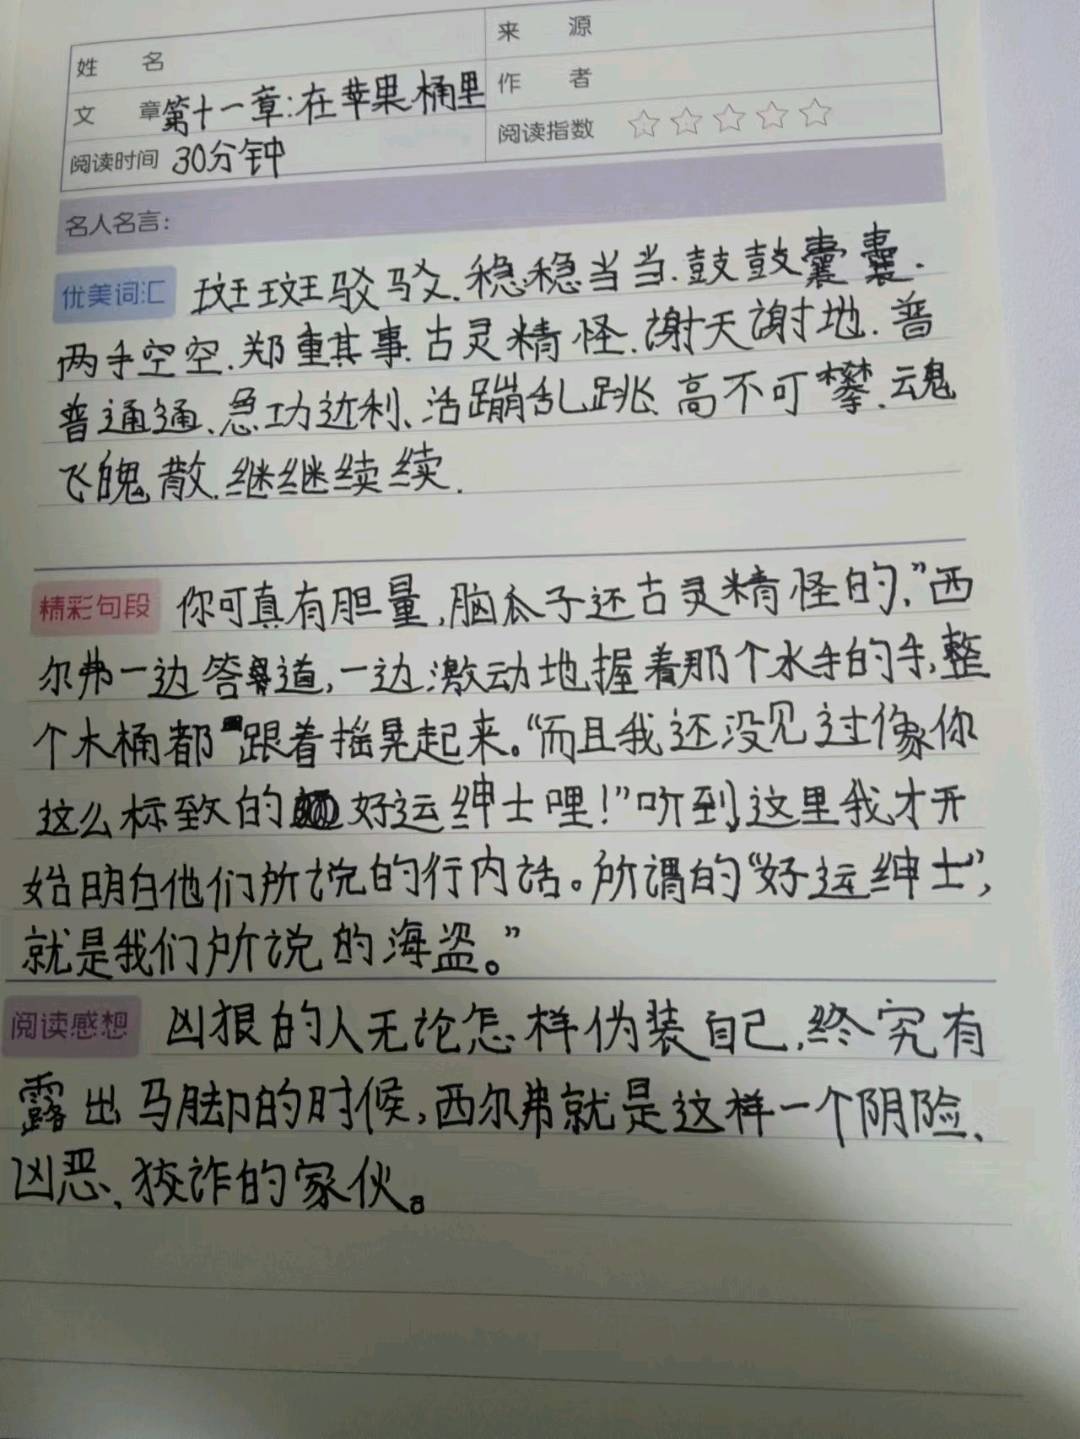 姓 名
来 源
文 章 第十一章:在苹果桶里
作 者
阅读时间 30分钟
阅读指数 ☆☆☆☆☆
名人名言:
优美词汇 斑斑驳驳.稳稳当当.鼓鼓囊囊.
两手空空.郑重其事.古灵精怪.谢天谢地.普
普通通、急功近利、活蹦乱跳、高不可攀.魂
飞魄散.继继续续.
精彩句段 你可真有胆量,脑瓜子还古灵精怪的,”西
尔弗一边答道,一边激动地握着那个水手的手,整
个木桶都跟着摇晃起来。“而且我还没见过像你
这么标致的好运绅士哩!”听到这里我才开
始明白他们所说的行内话。所谓的“好运绅士”,
就是我们所说的海盗。”
阅读感想 凶狠的人无论怎样伪装自己,终究有
露出马脚的时候,西尔弗就是这样一个阴险、
凶恶、狡诈的家伙。